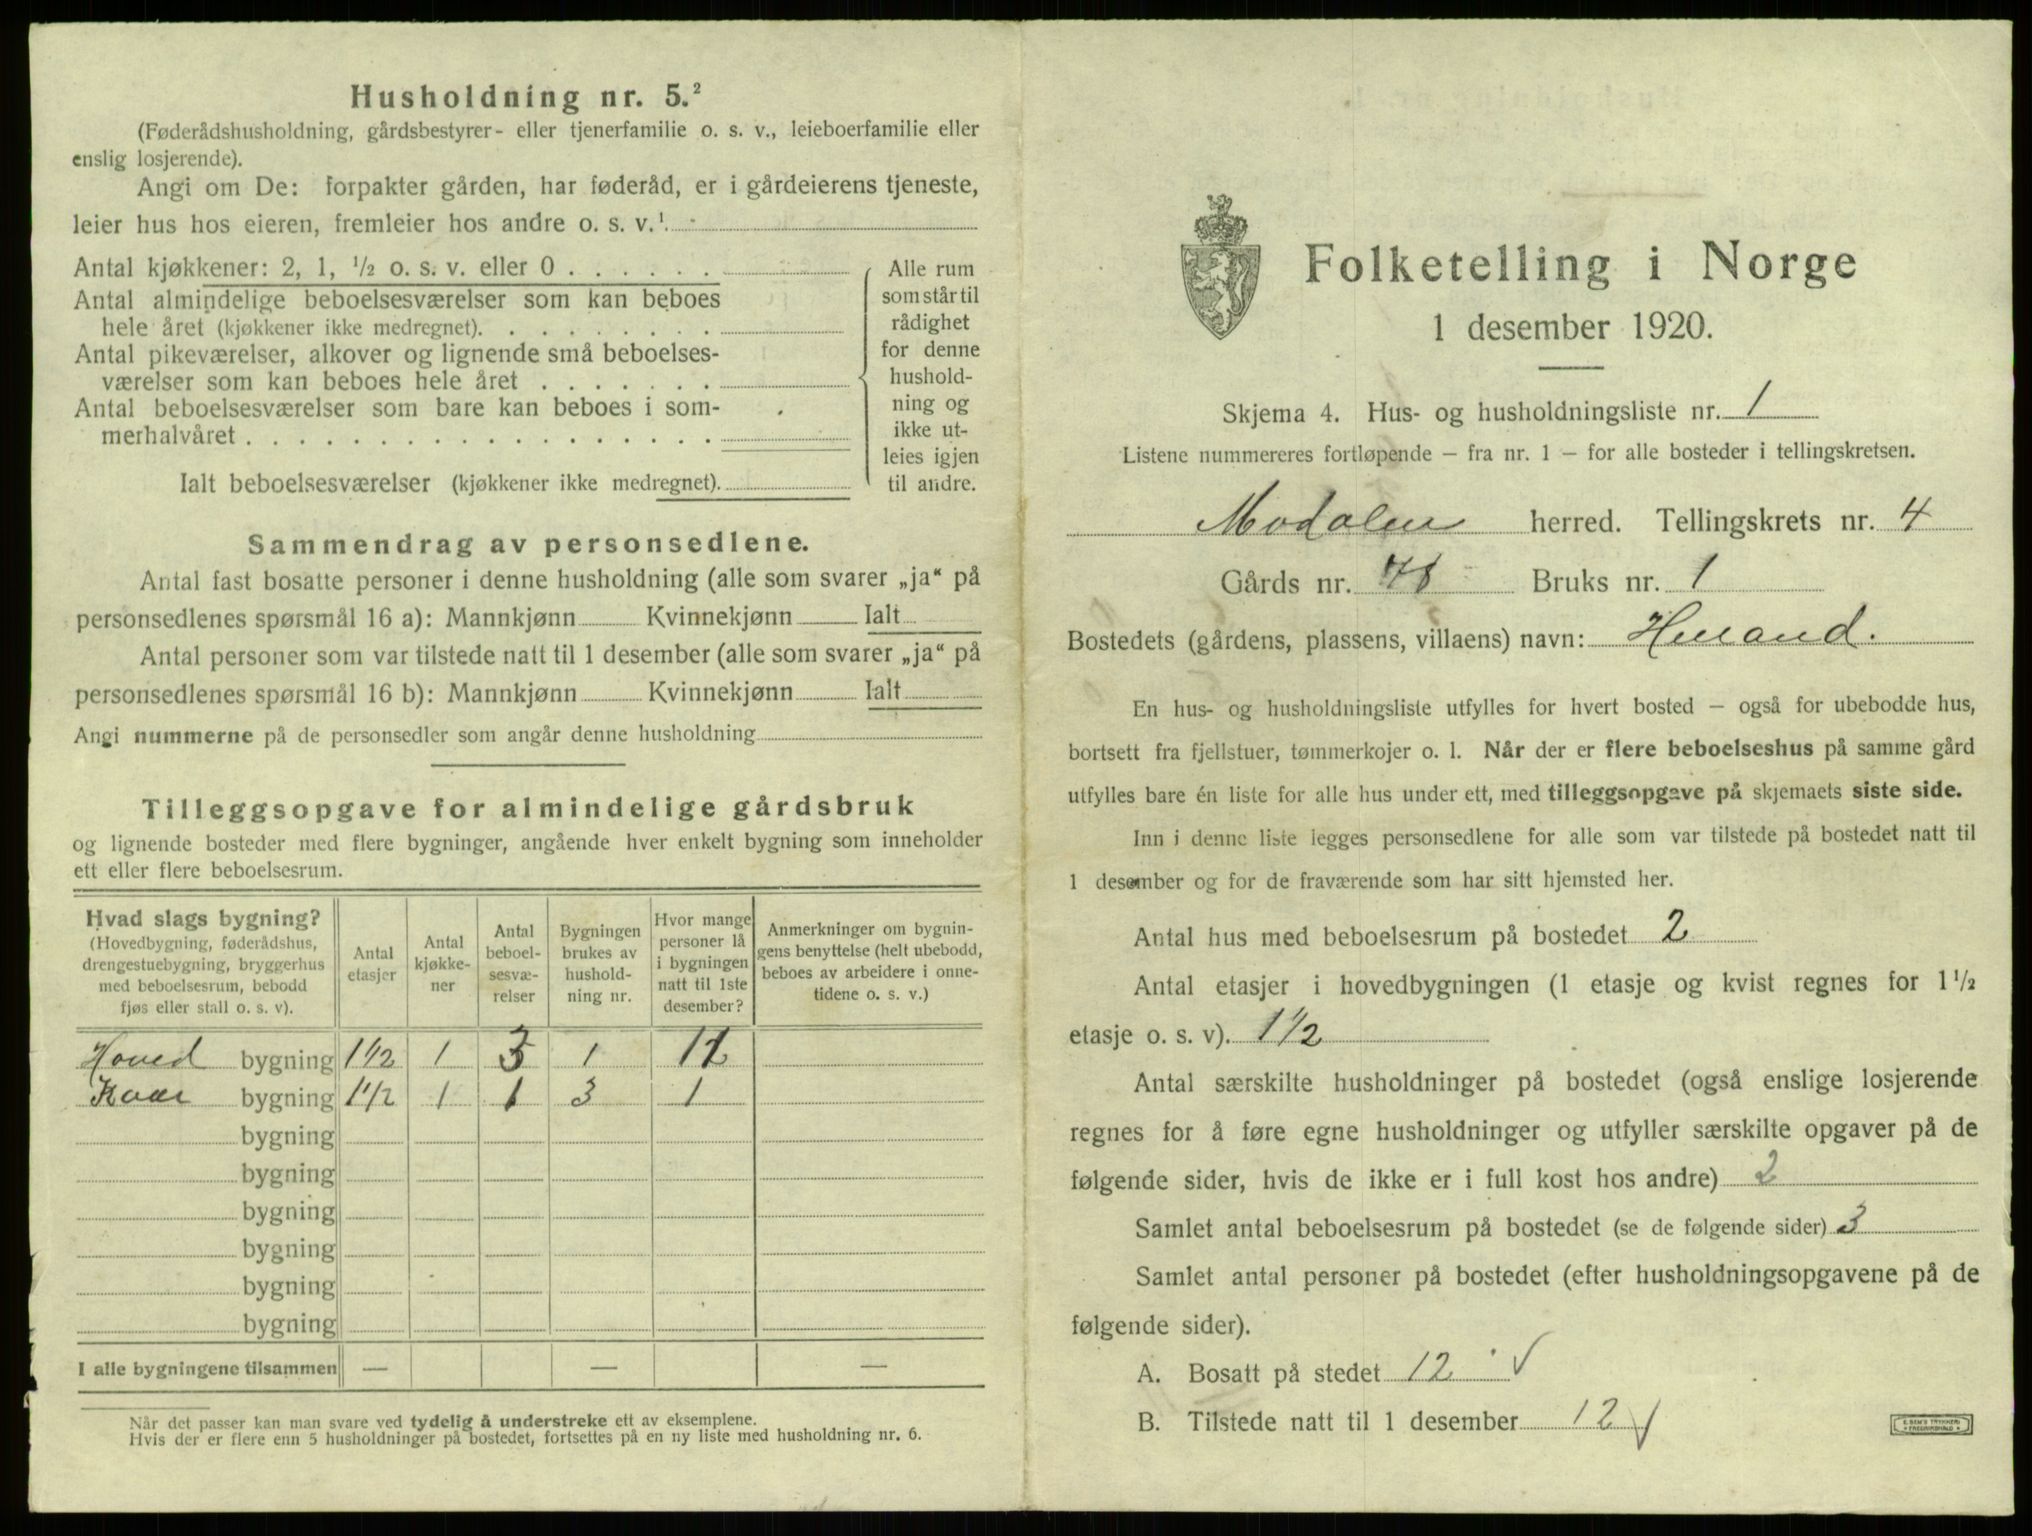 Husholdning nr. 5.²
(Føderådshusholdning, gårdsbestyrer- eller tjenerfamilie o. s. v., leieboerfamilie eller
enslig losjerende).
Angi om De: forpakter gården, har føderåd, er i gårdeierens tjeneste,
leier hus hos eieren, fremleier hos andre o. s. v.¹
Antal kjøkkener: 2, 1, ½ o. s. v. eller 0 . . . . . .
Antal almindelige beboelsesværelser som kan beboes
hele året (kjøkkener ikke medregnet). . . . . . . . .
Antal pikeværelser, alkover og lignende små beboelses-
værelser som kan beboes hele året . . . . . . .
Antal beboelsesværelser som bare kan beboes i som-
merhalvåret . . . . . . . . . . . . . . . . . .
Ialt beboelsesværelser (kjøkkener ikke medregnet).
Alle rum
som står til
rådighet
for denne
hushold-
ning og
ikke ut-
leies igjen
til andre.
Sammendrag av personsedlene.
Antal fast bosatte personer i denne husholdning (alle som svarer „ja“ på
personsedlenes spørsmål 16 a): Mannkjønn Kvinnekjønn Ialt
Antal personer som var tilstede natt til 1 desember (alle som svarer „ja“ på
personsedlenes spørsmål 16 b): Mannkjønn Kvinnekjønn Ialt
Angi nummerne på de personsedler som angår denne husholdning
Tilleggsopgave for almindelige gårdsbruk
og lignende bosteder med flere bygninger, angående hver enkelt bygning som inneholder
ett eller flere beboelsesrum.
Hvad slags bygning?
(Hovedbygning, føderådshus,
drengestuebygning, bryggerhus
med beboelsesrum, bebodd
fjøs eller stall o. s. v).
Antal
etasjer
Antal
kjøkke-
ner
Antal
beboel-
sesvæ-
relser
Bygningen
brukes av
hushold-
ning nr.
Hvor mange
personer lå
i bygningen
natt til 1ste
desember?
Anmerkninger om bygnin-
gens benyttelse (helt ubebodd,
beboes av arbeidere i onne-
tidene o. s. v.)
Hoved bygning 1½ 1 3 1 11
bygning 1½ 1 1 3 1
bygning
bygning
bygning
bygning
bygning
bygning
I alle bygningene tilsammen — — —
Når det passer kan man svare ved tydelig å understreke ett av eksemplene.
Hvis der er flere enn 5 husholdninger på bostedet, fortsettes på en ny liste med husholdning nr. 6.
Folketelling i Norge
1 desember 1920.
Skjema 4. Hus- og husholdningsliste nr. 1
Listene nummereres fortløpende — fra nr. 1 — for alle bosteder i tellingskretsen.
Modalen herred. Tellingskrets nr. 4
Gårds nr. 48 Bruks nr. 1
Bostedets (gårdens, plassens, villaens) navn:
En hus- og husholdningsliste utfylles for hvert bosted — også for ubebodde hus,
bortsett fra fjellstuer, tømmerkojer o. l. Når der er flere beboelseshus på samme gård
utfylles bare én liste for alle hus under ett, med tilleggsopgave på skjemaets siste side.
Inn i denne liste legges personsedlene for alle som var tilstede på bostedet natt til
1 desember og for de fraværende som har sitt hjemsted her.
Antal hus med beboelsesrum på bostedet 2
Antal etasjer i hovedbygningen (1 etasje og kvist regnes for 1½
etasje o. s. v). 1½
Antal særskilte husholdninger på bostedet (også enslige losjerende
regnes for å føre egne husholdninger og utfyller særskilte opgaver på de
følgende sider, hvis de ikke er i full kost hos andre) 2
Samlet antal beboelsesrum på bostedet (se de følgende sider) 3
Samlet antal personer på bostedet (efter husholdningsopgavene på de
følgende sider).
A. Bosatt på stedet 12 √
B. Tilstede natt til 1 desember 12 √